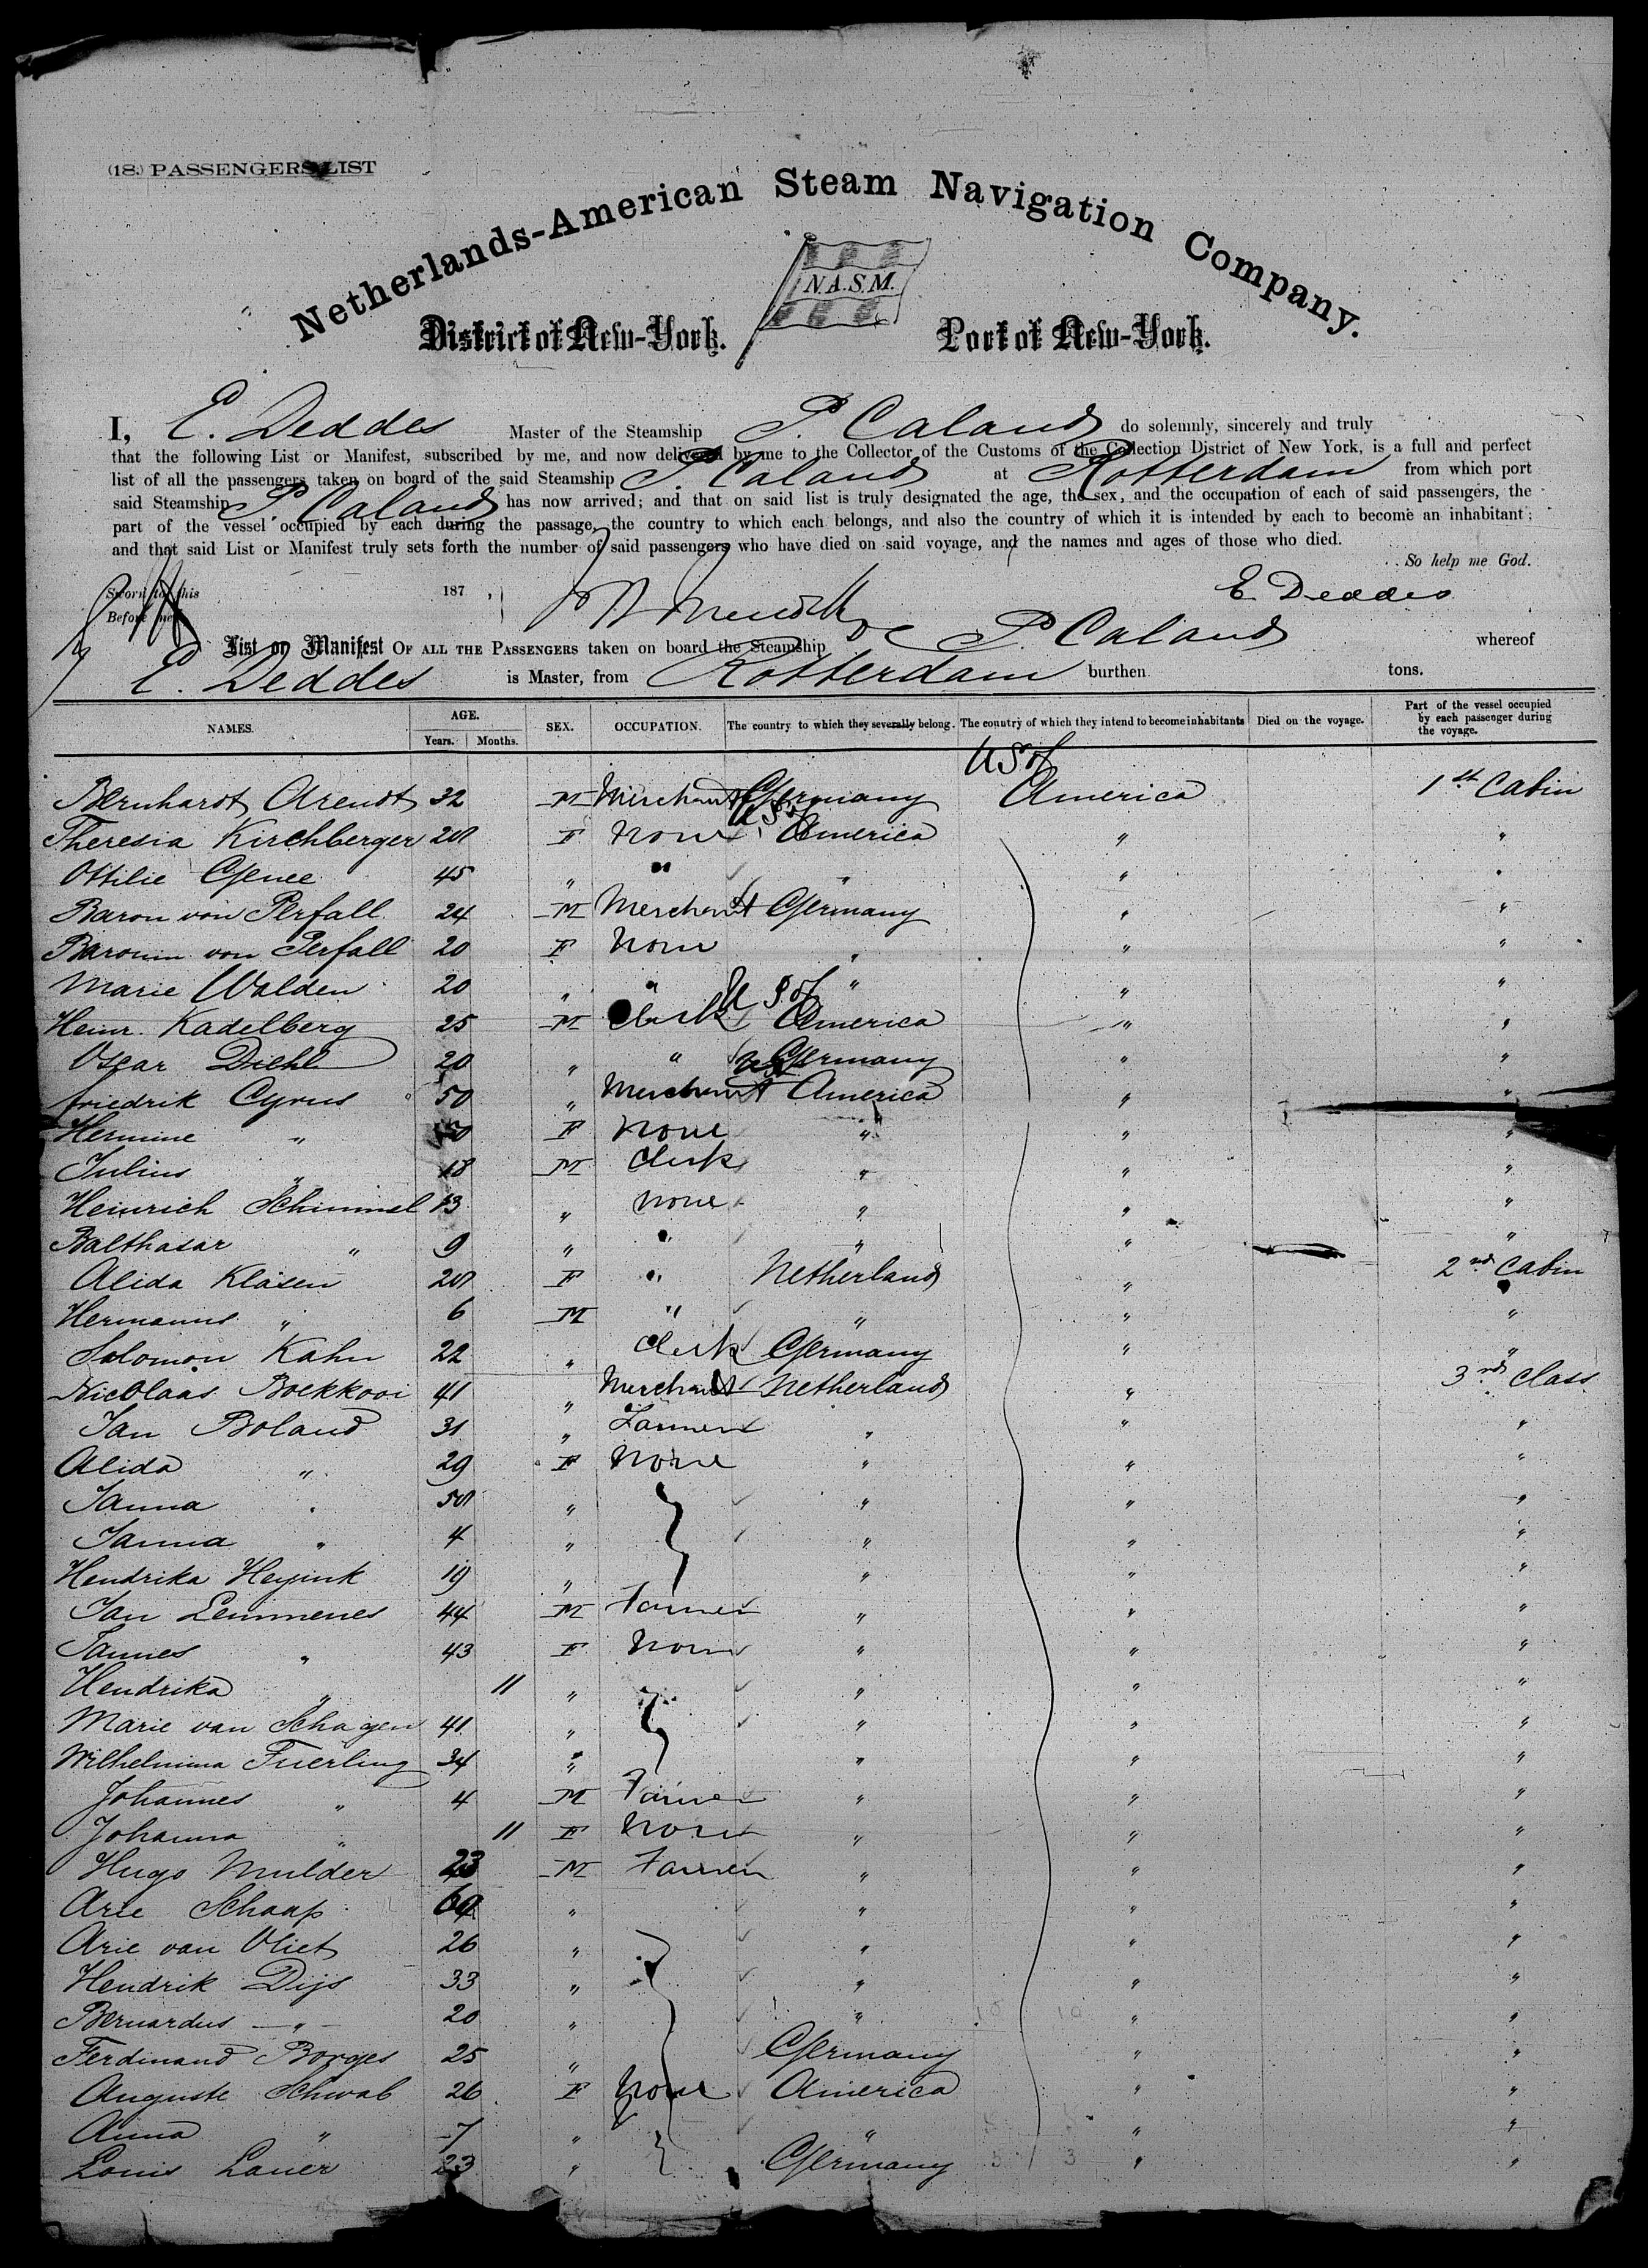 (18.) PASSENGERS LIST
Netherlands-American Steam Navigation Company.
N.A.S.M.
District of New-York. Port of New-York.
I, E. Deddes Master of the Steamship P. Caland do solemnly, sincerely and truly
that the following List or Manifest, subscribed by me, and now delivered by me to the Collector of the Customs of the Collection District of New York, is a full and perfect
list of all the passengers taken on board of the said Steamship P. Caland at Rotterdam from which port
said Steamship P. Caland has now arrived; and that on said list is truly designated the age, the sex, and the occupation of each of said passengers, the
part of the vessel occupied by each during the passage, the country to which each belongs, and also the country of which it is intended by each to become an inhabitant;
and that said List or Manifest truly sets forth the number of said passengers who have died on said voyage, and the names and ages of those who died.
So help me God.
Sworn to this 187 , E Deddes
Before me
List or Manifest OF ALL THE PASSENGERS taken on board the Steamship P. Caland whereof
E. Deddes is Master, from Rotterdam burthen tons.
NAMES. AGE. Years. Months. SEX. OCCUPATION. The country to which they severally belong. The country of which they intend to become inhabitants Died on the voyage. Part of the vessel occupied by each passenger during the voyage.
US of
Bernhardt Arendt 32 M Merchant Germany America 1st Cabin
US of
Theresia Kirchberger 20 F None America " "
Ottilie Genee 45 " " " " "
Baron von Perfall 24 M Merchant Germany " "
Baronin von Perfall 20 F None " " "
Marie Walden 20 " " " " "
U S of
Heinr. Kadelberg 25 M Clerk America " "
Oscar Diehl 20 " " Germany " "
Friedrik Cyrus 50 " Merchant America " "
Hermine " F None " " "
Julius " 18 M Clerk " " "
Heinrich Schimmel 13 " None " " "
Balthasar " 9 " " " " "
Alida Klasen 20 F " Netherland " 2nd Cabin
Hermanns " 6 M " " " "
Solomon Kahn 22 " Clerk Germany " "
Nicolaas Boekkooi 41 " Merchant Netherland " 3rd Class
Jan Boland 31 " Farmer " " "
Alida " 29 F None " " "
Janna " 50 " " " "
Janna " 4 " " " "
Hendrika Heyink 19 " " " "
Jan Lemmenes 44 M Farmer " " "
Jannes " 43 F None " " "
Hendrika " 11 " " " "
Marie van Schagen 41 " " " "
Wilhelmina Fuerling 34 " " " "
Johannes " 4 M Farmer " " "
Johanna " 11 F None " " "
Hugo Mulder 23 M Farmer " " "
Arie Schaap 60 " " " "
Arie van Vliet 26 " " " "
Hendrik Dijs 33 " " " "
Bernardus " 20 " " " "
Ferdinand Borges 25 " Germany " "
Auguste Schwab 26 F None America " "
Anna " 7 " " " "
Louis Lauer 23 " Germany " "